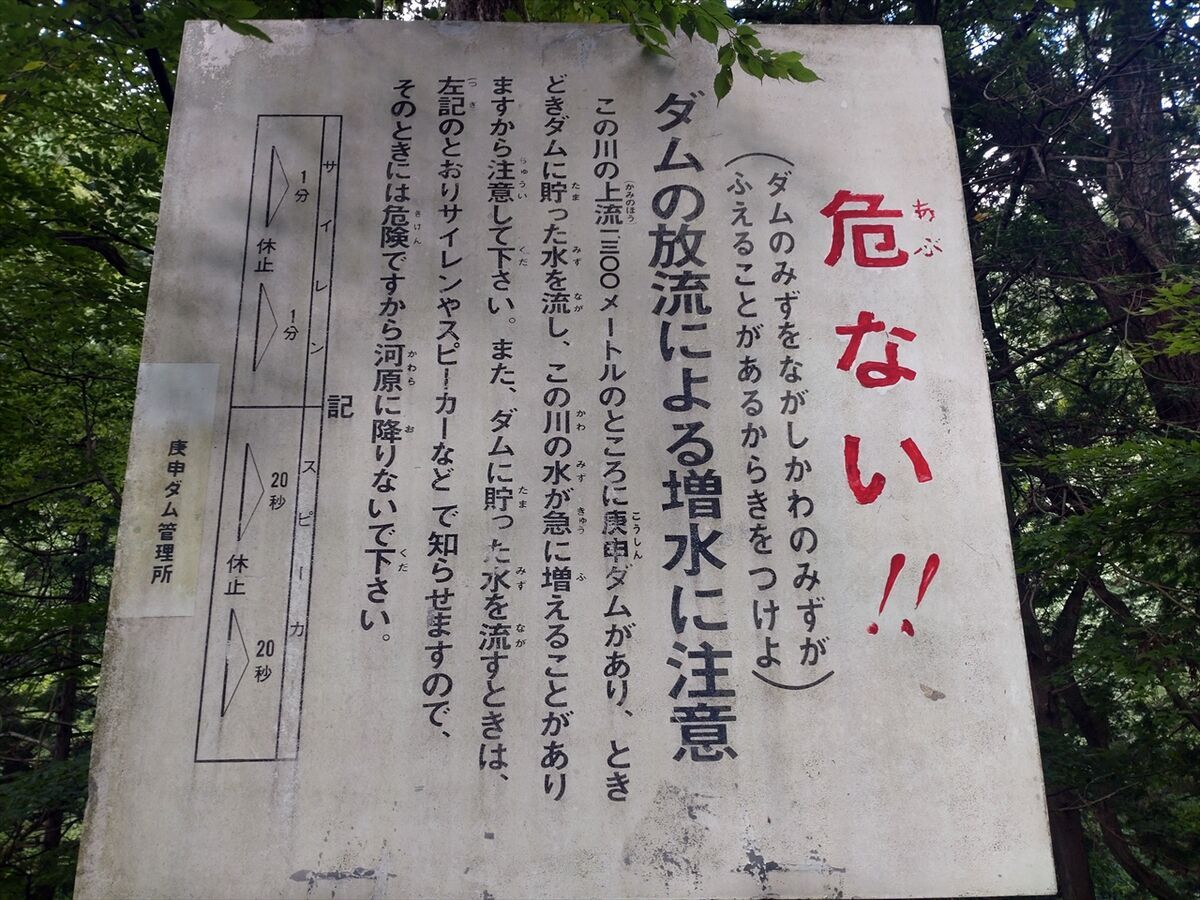 あぶ
危ない!!
(ダムのみずをながしかわのみずが
ふえることがあるからきをつけよ)
ダムの放流による増水に注意
かみのほう こうしん
この川の上流一三〇〇メートルのところに庚申ダムがあり、とき
たま みず なが かわ みず きゅう ふ
どきダムに貯った水を流し、この川の水が急に増えることがあり
ちゅうい くだ たま みず なが
ますから注意して下さい。また、ダムに貯った水を流すときは、
つぎ
左記のとおりサイレンやスピーカーなどで知らせますので、
きけん かわら お くだ
そのときには危険ですから河原に降りないで下さい。
記
サイレン
1分
休止
1分
スピーカ
20秒
休止
20秒
庚申ダム管理所